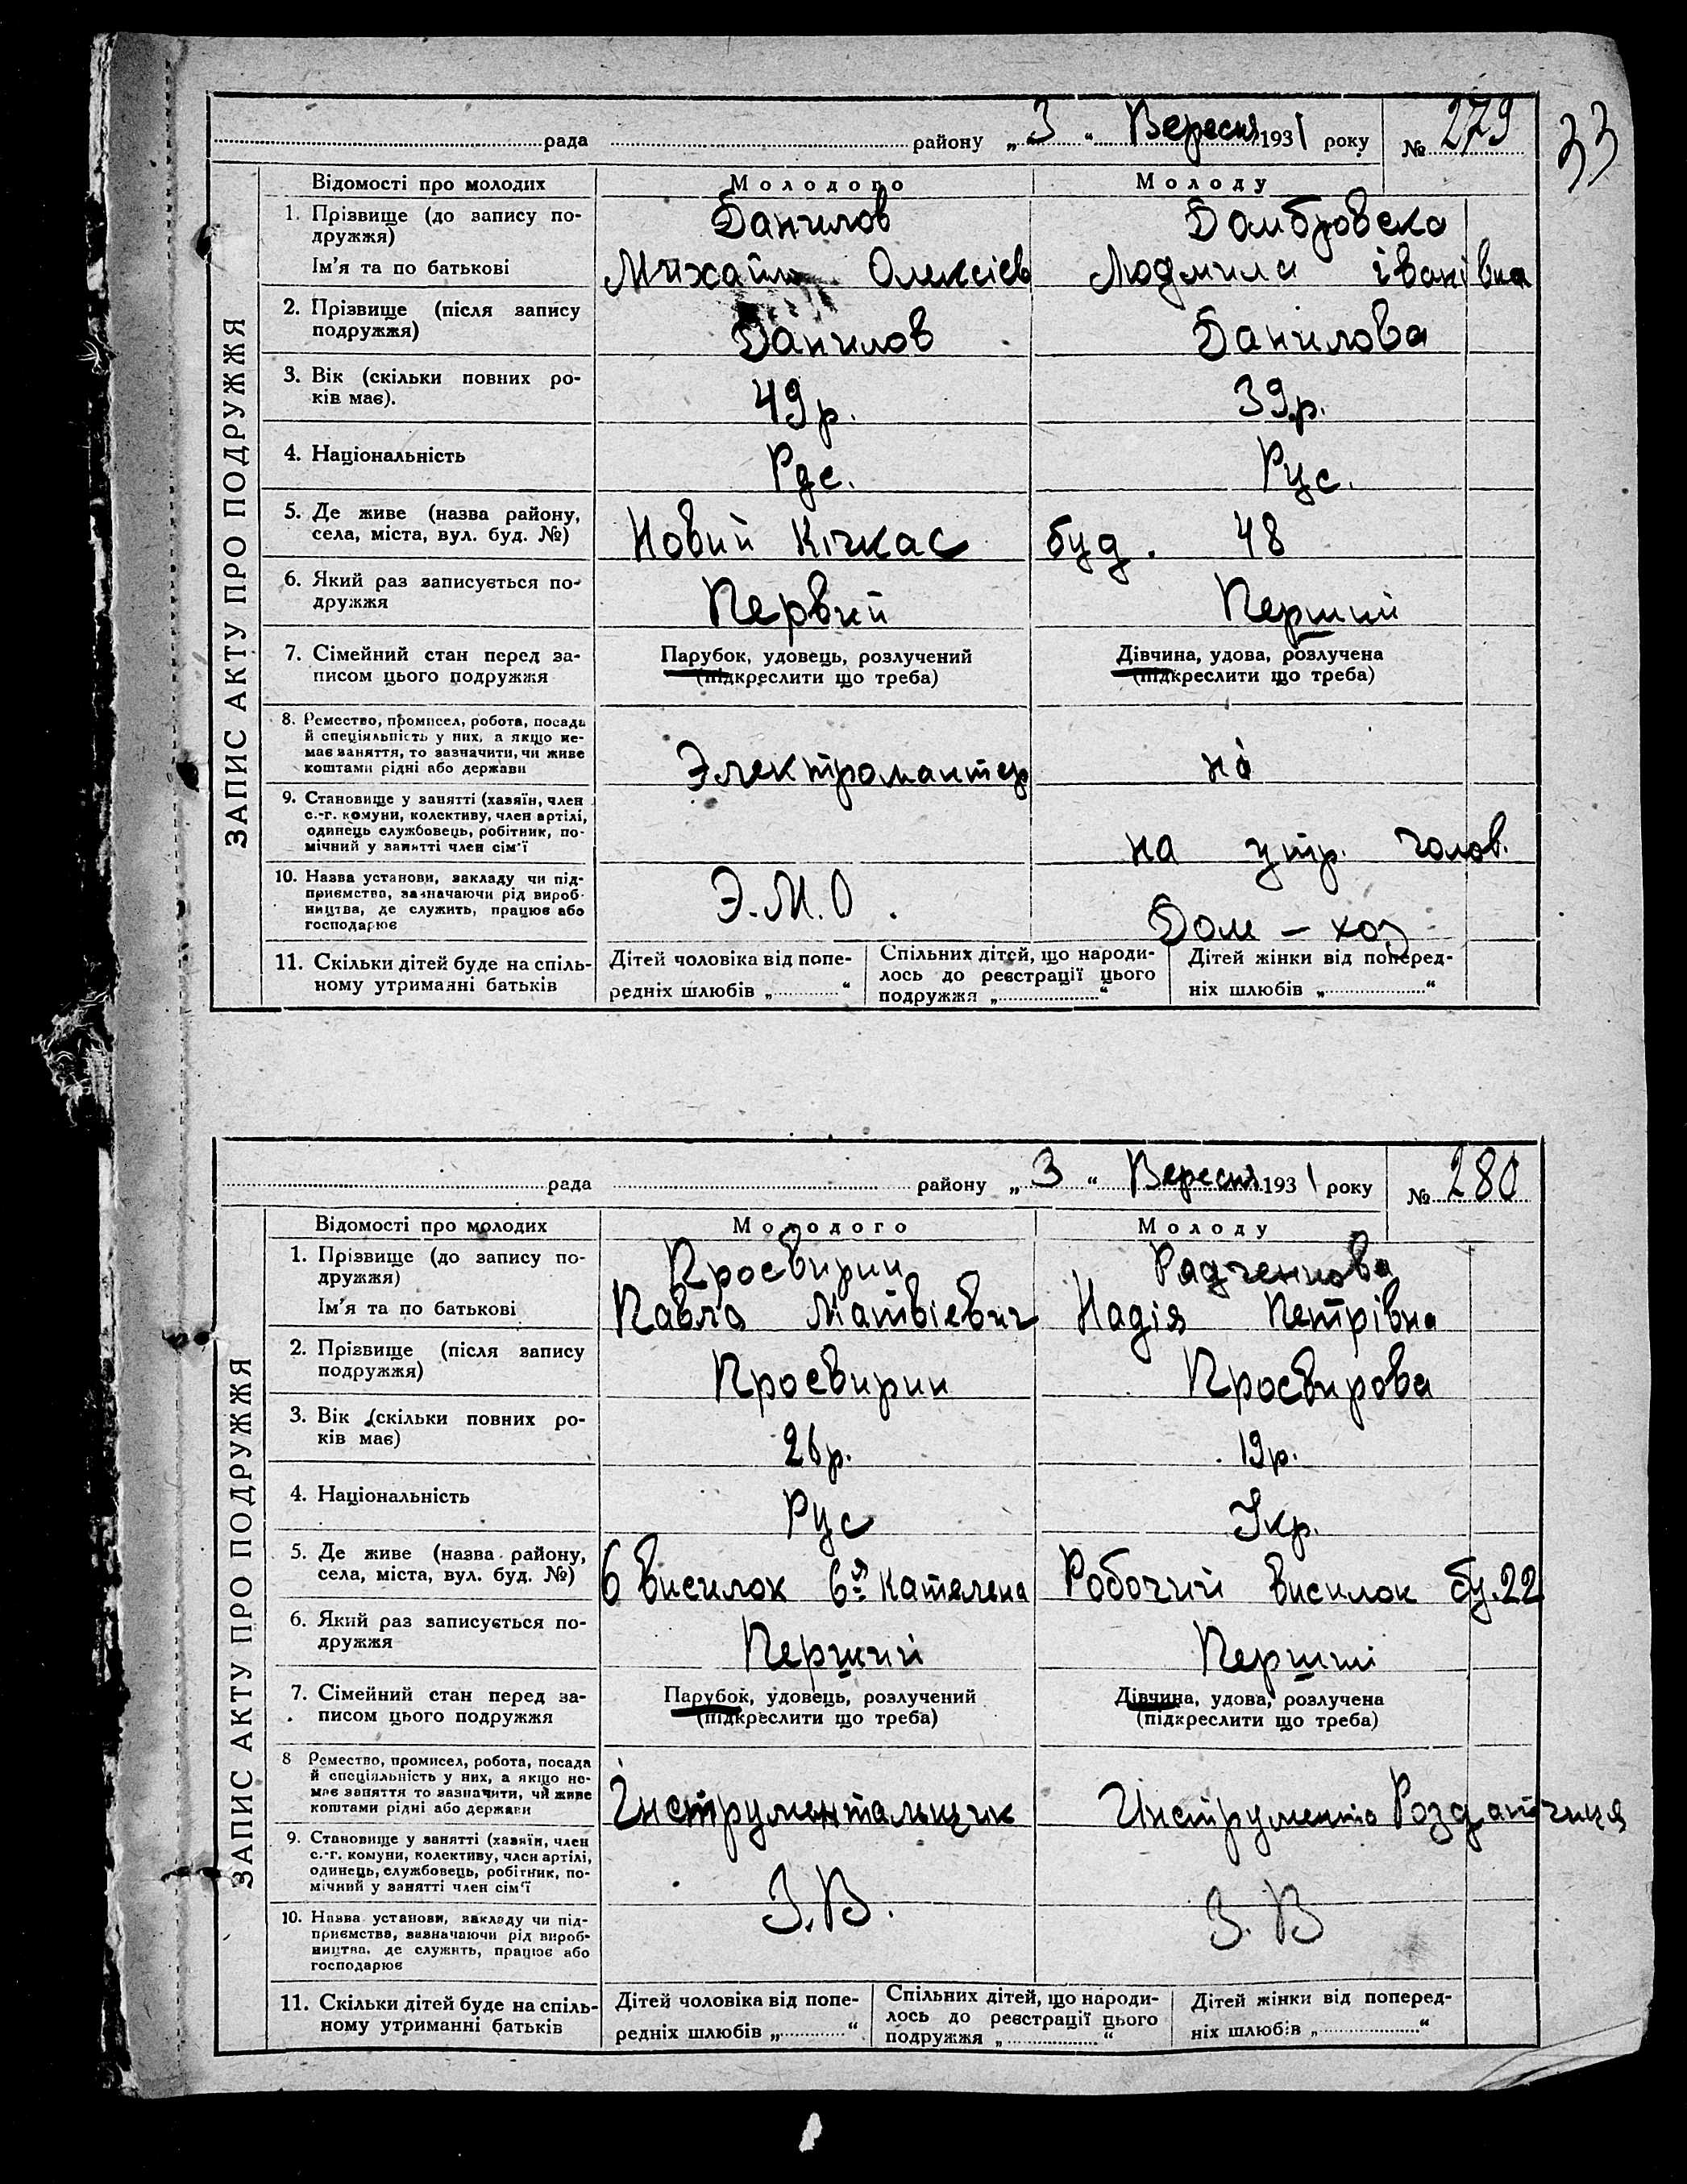 33
рада району „3“ Вересня 1931 року № 279
ЗАПИС АКТУ ПРО ПОДРУЖЖЯ
Відомості про молодих Молодого Молоду
1. Прізвище (до запису подружжя) Данилов Домбровска
Ім'я та по батькові Михайло Олексієв Людмила Іванівна
2. Прізвище (після запису подружжя) Данилов Данилова
3. Вік (скільки повних років має). 49р. 39р.
4. Національність Рус. Рус.
5. Де живе (назва району, села, міста, вул. буд. №) Новий Кічкас буд. 48
6. Який раз записується подружжя Первий Перший
7. Сімейний стан перед записом цього подружжя Парубок, удовець, розлучений (підкреслити що треба) Дівчина, удова, розлучена (підкреслити що треба)
8. Ремество, промисел, робота, посада й спеціяльність у них, а якщо немає заняття, то зазначити, чи живе коштами рідні або держави Электромантер на
9. Становище у занятті (хазяїн, член с.-г. комуни, колективу, член артілі, одинець службовець, робітник, помічний у занятті член сім'ї на утр. чолов.
10. Назва установи, закладу чи підприємства, зазначаючи рід виробництва, де служить, працює або господарює Э.М.О. Дом – хоз
11. Скільки дітей буде на спільному утриманні батьків Дітей чоловіка від попередніх шлюбів „ “ Спільних дітей, що народилось до реєстрації цього подружжя „ “ Дітей жінки від попередніх шлюбів „ “
рада району „3“ Вересня 1931 року № 280
ЗАПИС АКТУ ПРО ПОДРУЖЖЯ
Відомості про молодих Молодого Молоду
1. Прізвище (до запису подружжя) Просвирин Радченкова
Ім'я та по батькові Павло Матвієвич Надія Петрівна
2. Прізвище (після запису подружжя) Просвирин Просвирова
3. Вік (скільки повних років має) 26р. 19р.
4. Національність Рус Укр.
5. Де живе (назва району, села, міста, вул. буд. №) 6 висилок Робочий висилок бу. 22
6. Який раз записується подружжя Перший Перший
7. Сімейний стан перед записом цього подружжя Парубок, удовець, розлучений (підкреслити що треба) Дівчина, удова, розлучена (підкреслити що треба)
8 Ремество, промисел, робота, посада й спеціяльність у них, а якщо немає заняття то зазначити, чи живе коштами рідні або держави Інструментальщик Инструменто Роздатчиця
9. Становище у занятті (хазяїн, член с.-г. комуни, колективу, член артілі, одинець, службовець, робітник, помічний у занятті член сім'ї З.В. З.В
10. Назва установи, закладу чи підприємства, зазначаючи рід виробництва, де служить, працює або господарює
11. Скільки дітей буде на спільному утриманні батьків Дітей чоловіка від попередніх шлюбів „ “ Спільних дітей, що народилось до реєстрації цього подружжя „ “ Дітей жінки від попередніх шлюбів „ “